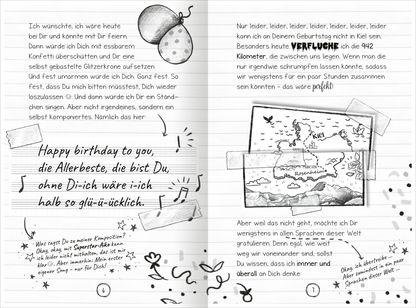 Ich wünschte, ich wäre heute
bei Dir und könnte mit Dir feiern.
Dann würde ich Dich mit essbarem
Konfetti überschütten und Dir eine
selbst gebastelte Glitzerkrone aufsetzen.
Und fest umarmen würde ich Dich. Ganz fest. So
fest, dass Du mich bitten müsstest, Dich wieder
loszulassen 😊 Und dann würde ich Dir ein Ständ-
chen singen. Aber nicht irgendeines, sondern ein
selbst komponiertes. Nämlich das hier
Happy birthday to you,
die Allerbeste, die bist Du,
ohne Di-ich wäre i-ich
halb so glü-ü-ücklich.
Was sagst Du zu meiner Komposition?
Okay, okay, mit Superstar-Aika kann
ich leider nicht mithalten, das ist mir
klar 😊. Aber immerhin: Mein erster
eigener Song – nur für Dich!
6
Nur leider, leider, leider, leider, leider, leider, leider
kann ich an Deinem Geburtstag nicht in Kiel sein.
Besonders heute VERFLUCHE ich die 942
Kilometer, die zwischen uns liegen. Wenn man die
nur irgendwie schrumpfen lassen könnte, sodass
wir wenigstens für ein paar Stunden zusammen
sein könnten – das wäre perfekt!
Kiel
Rosenheim
Aber weil das nicht geht, möchte ich Dir
wenigstens in allen Sprachen dieser Welt
gratulieren. Denn egal, wie weit
weg wir voneinander sind, sollst
Du wissen, dass ich immer und
überall an Dich denke:
Okay, ich übertreibe –
Aber zumindest in ein paar
Sprachen dieser Welt ...
7